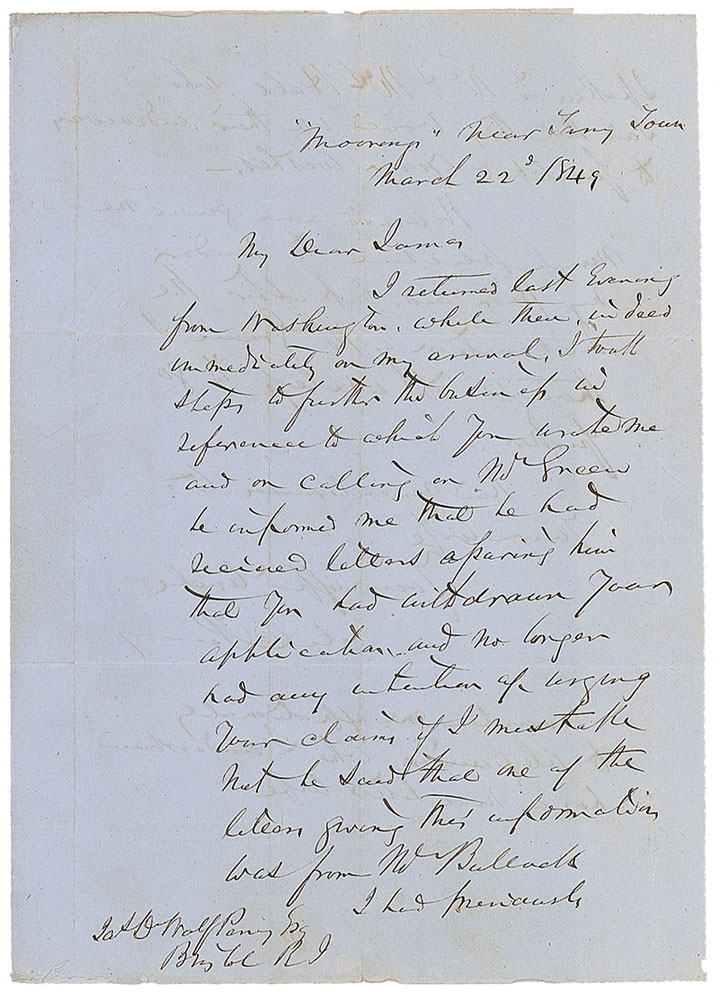 "Moorings" near Tarry Town
March 22d 1849
My Dear James
I returned last Evening
from Washington. while there, indeed
immediately on my arrival, I took
steps to further the business in
reference to which you wrote me
and on calling on Mr Green
he informed me that he had
received letters assuring him
that you had withdrawn your
application and no longer
had any intention of urging
your claims if I mistake
not he said that one of the
letters giving this information
was from Mr Bullock
I had previously
Jas D Wolf Perry Esq
Bristol R I